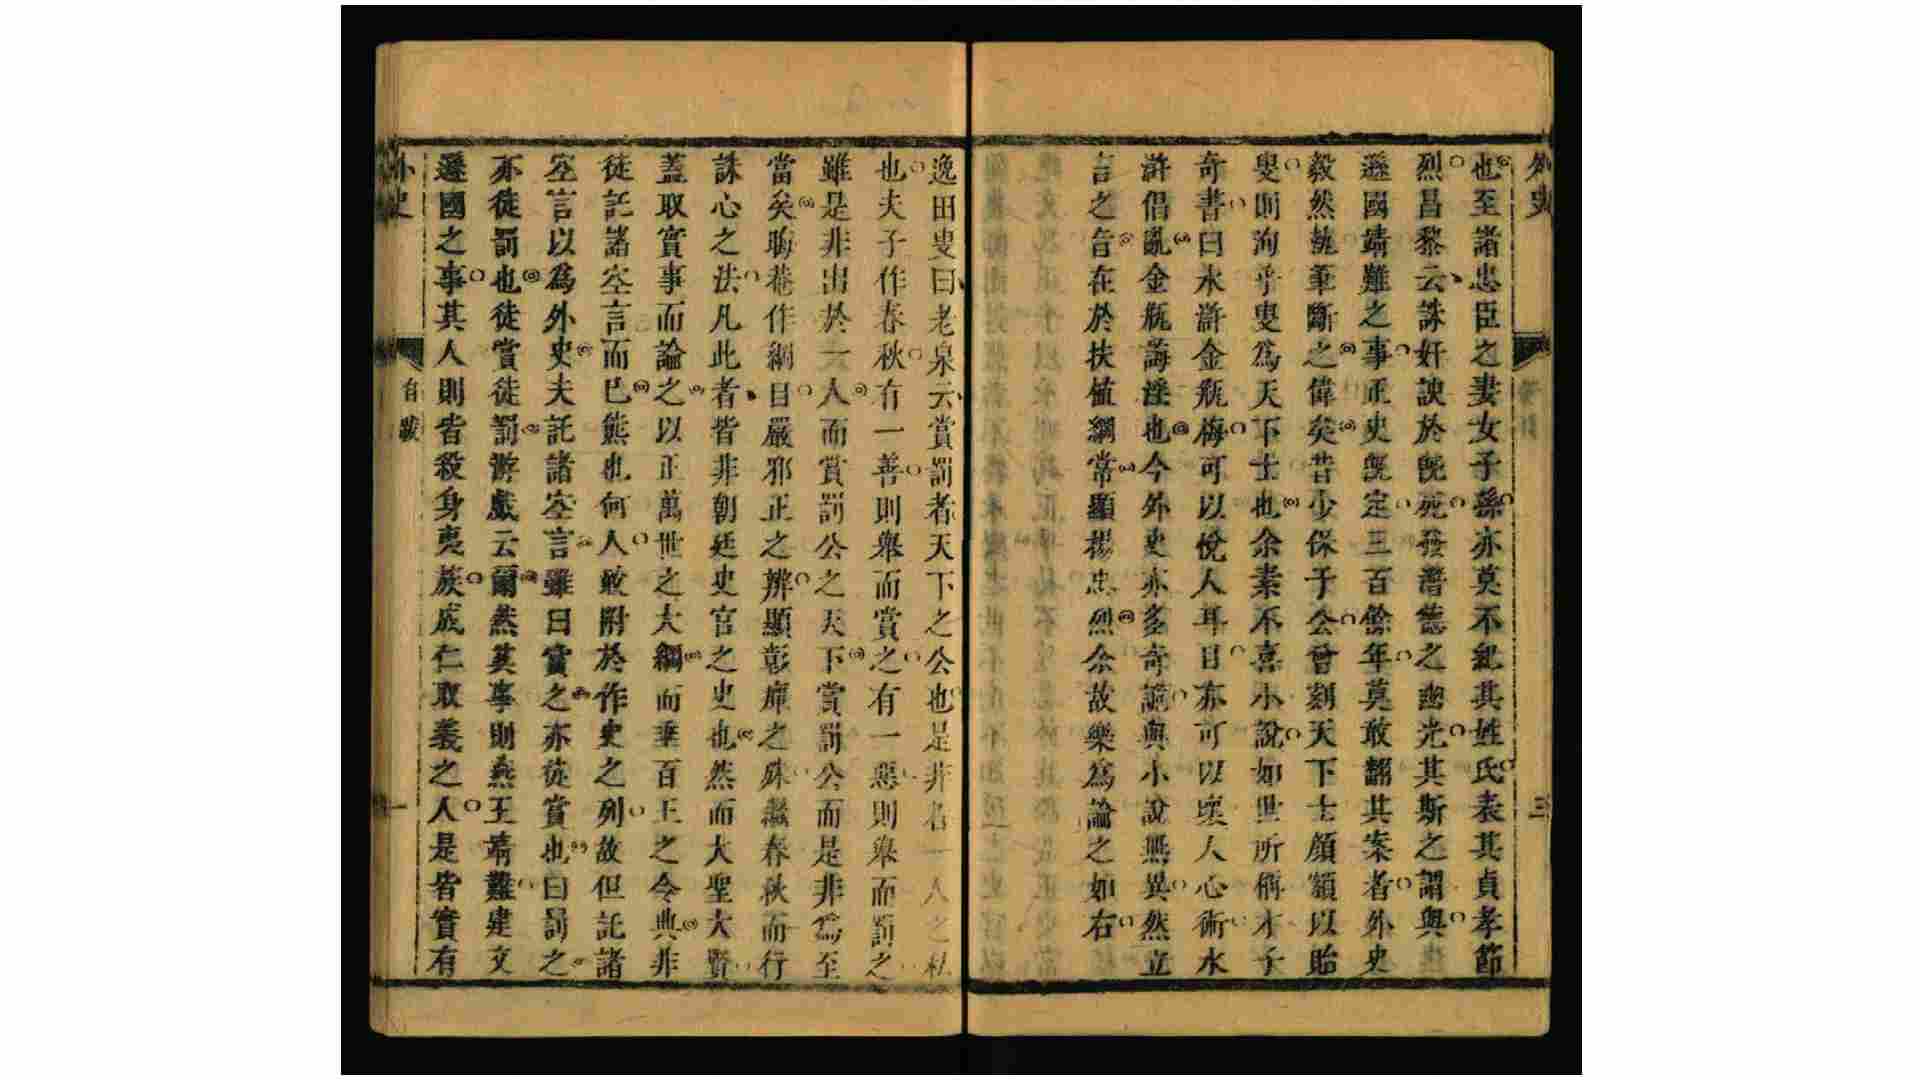 外史
三
也至諸忠臣之妻女子孫亦莫不紀其姓氏表其貞孝節
烈昌黎云誅奸諛於旣死發潛德之幽光其斯之謂與
遜國靖難之事正史旣定三百餘年莫敢翻其案者外史
毅然執筆斷之偉矣昔少保于公曾刻天下士顏額以貽
叟則洵乎叟爲天下士也余素不喜小說如世所稱才子
奇書曰水滸金瓶梅可以悅人耳目亦可以壞人心術水
滸倡亂金瓶誨淫也今外史亦多奇譎與小說無異然立
言之旨在於扶植綱常顯揚忠烈余故樂爲論之如右
逸田叟曰老泉云賞罰者天下之公也是非者一人之私
也夫子作春秋有一善則舉而賞之有一惡則舉而罰之
雖是非出於一人而賞罰公之天下賞罰公而是非爲至
當矣晦菴作綱目嚴邪正之辨顯彰癉之殊繼春秋而行
誅心之法凡此者皆非朝廷史官之史也然而大聖大賢
蓋取實事而論之以正萬世之大綱而垂百王之令典非
徒託諸空言而已熊也何人敢附於作史之列故但託諸
空言以爲外史夫託諸空言雖曰賞之亦徒賞也曰罰之
亦徒罰也徒賞徒罰游戲云爾然其事則燕王靖難建文
遜國之事其人則皆殺身夷族成仁取義之人是皆實有
外史
自跋
一